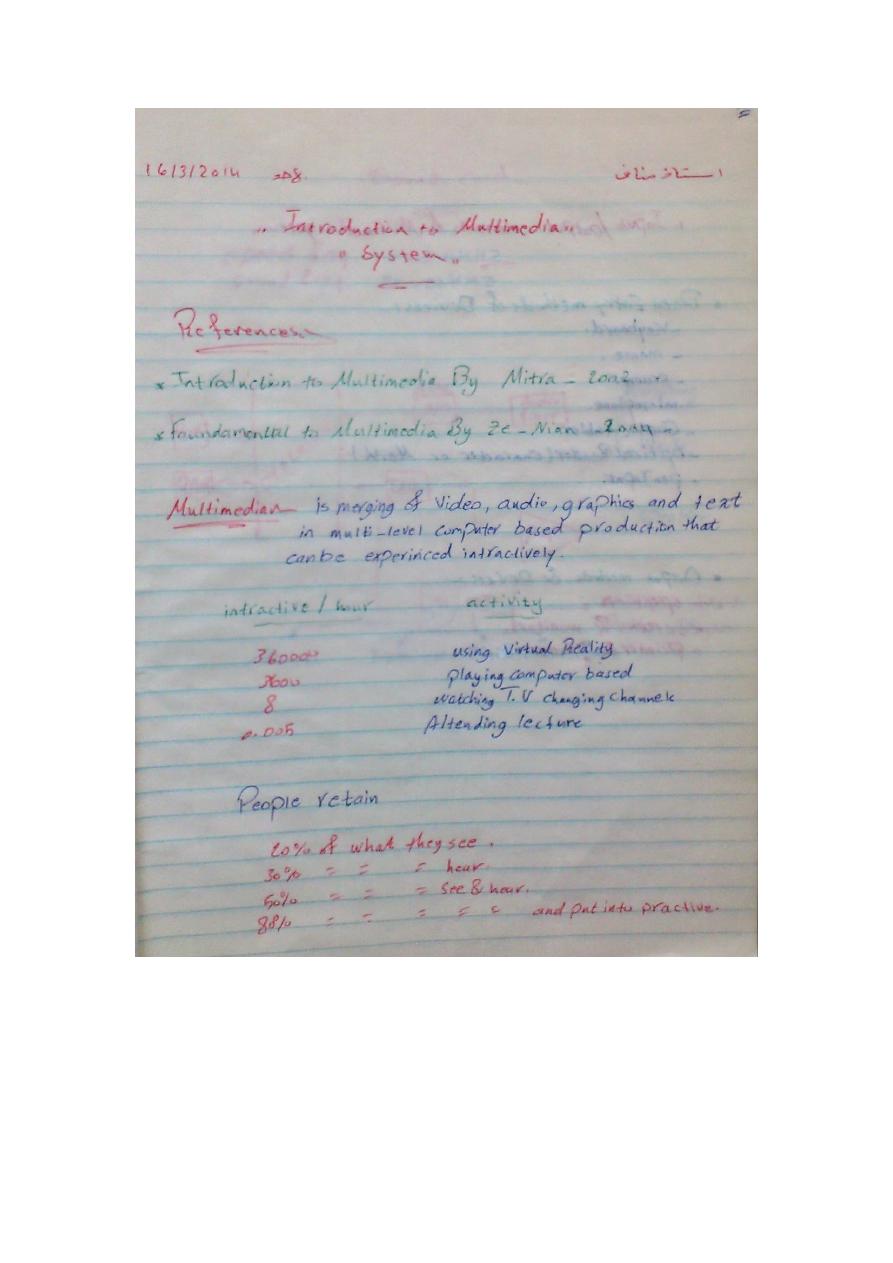 16/3/2014 استاذ مناف
" Introduction to Multimedia "
" System "
References
* Introduction to Multimedia By Mitra - 2002
* Foundamental to Multimedia By Ze - Nian 2004 -
Multimedia is merging of Video, audio, graphics and text
in multi-level computer based production that
canbe experinced intractively.
intractive / hour activity
360000 using Virtual Reality
3600 playing computer based
8 watching T.V changing channels
0.005 Attending lecture
People retain
20% of what they see .
30% = = = hear.
50% = = = see & hear.
88% = = = = = and put into practive.